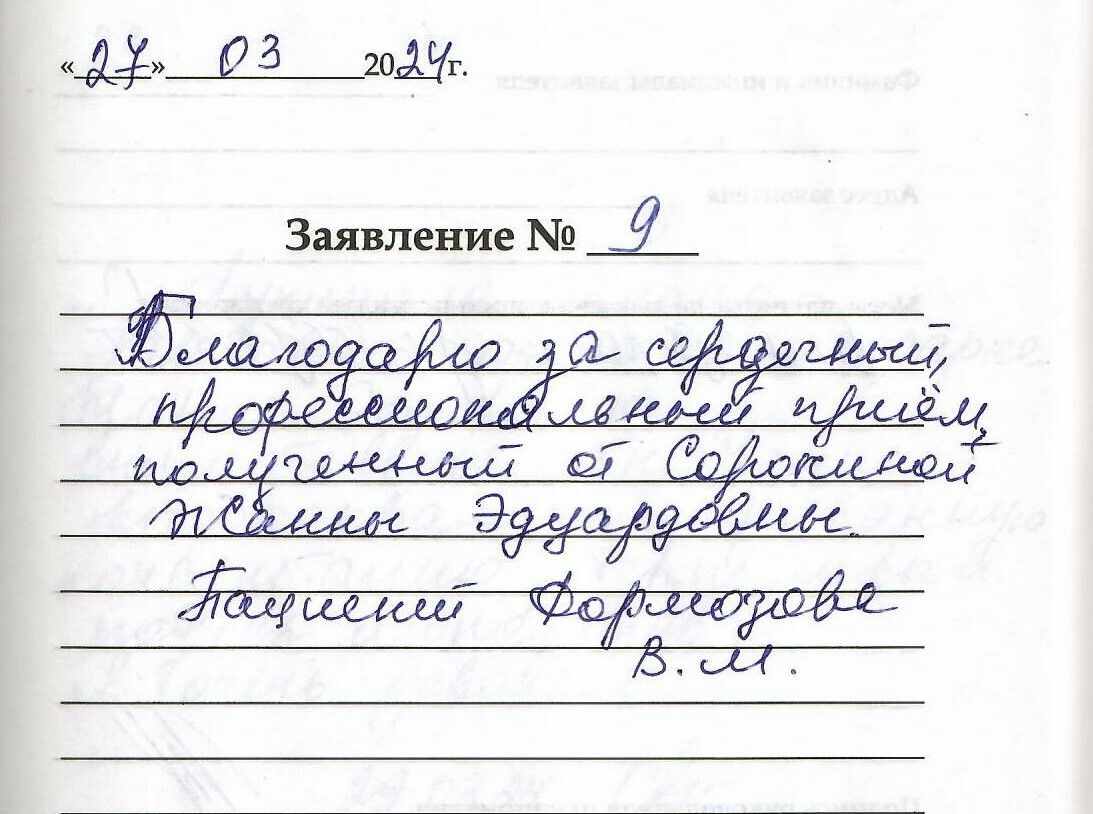 «27» 03 2024г.
Заявление № 9
Благодарю за сердечный,
профессиональный приём,
полученный от Сорокиной
Жанны Эдуардовны.
Пациент Формозова
В.М.